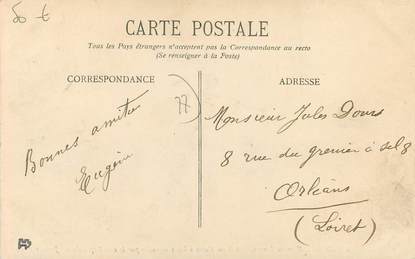 50 €
CARTE POSTALE
Tous les Pays étrangers n'acceptent pas la Correspondance au recto
(Se renseigner à la Poste)
CORRESPONDANCE
ADRESSE
77
Bonnes amitiés
Eugène
Monsieur Jules Dours
8 rue du grenier à sel 8
Orléans
(Loiret)